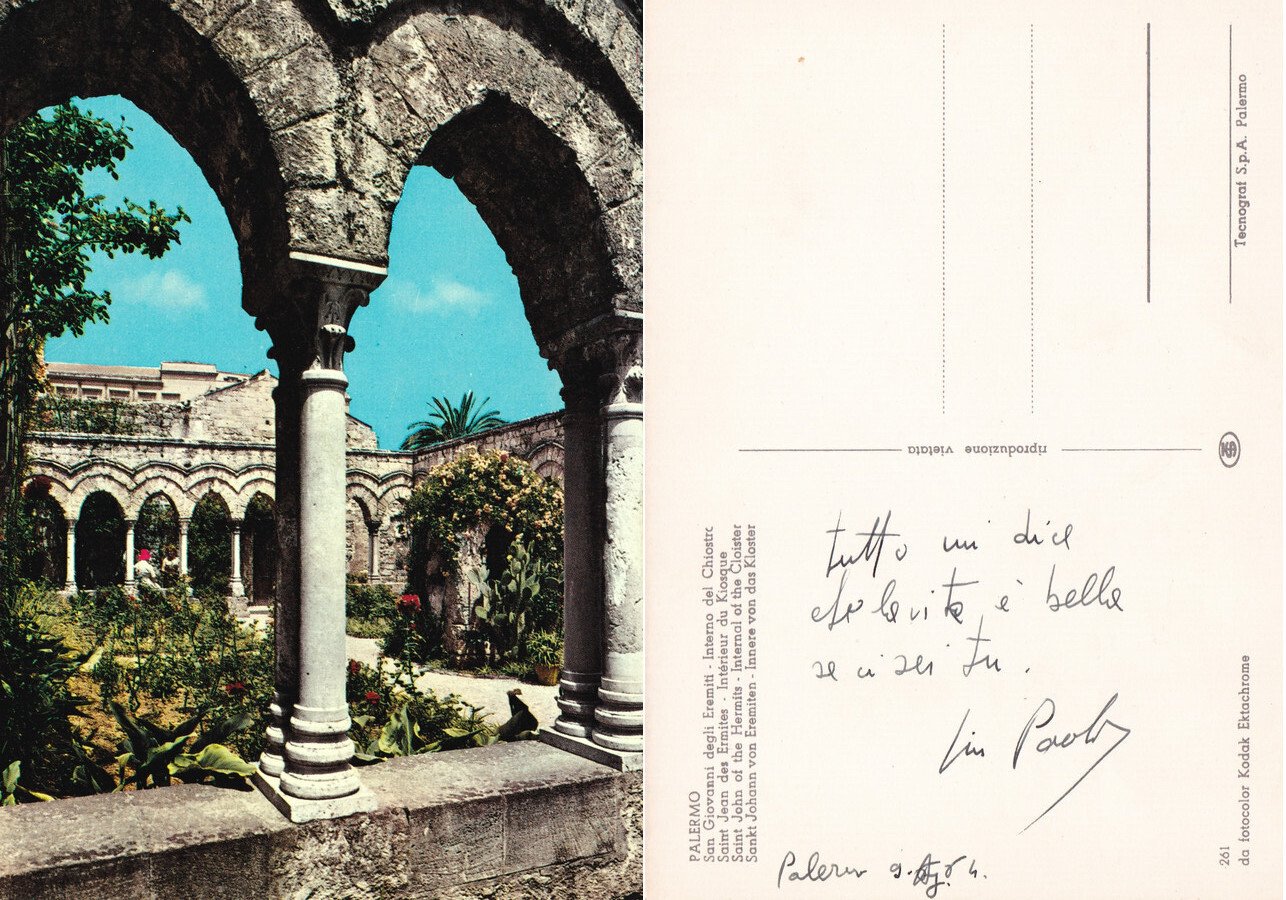 Tecnograf S.p.A. Palermo
riproduzione vietata
PALERMO
San Giovanni degli Eremiti - Interno del Chiostro
Saint Jean des Ermites - Intérieur du Kiosque
Saint John of the Hermits - Internal of the Cloister
Sankt Johann von Eremiten - Innere von das Kloster
tutto mi dice
che la vita è bella
se ci sei tu.
Paolo
261
da fotocolor Kodak Ektachrome
Palermo 9.